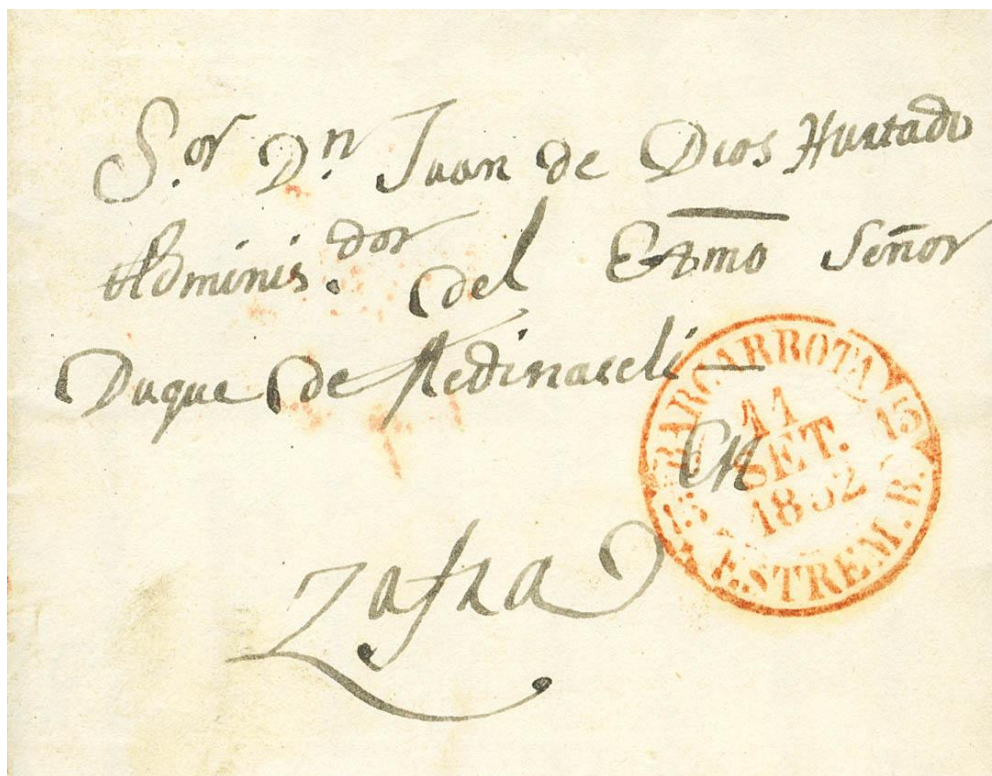 S.or D.n Juan de Dios Hurtado
Adminis.dor del Exmo Señor
Duque de Medinaceli
BARCARROTA 15
11
SET.
1852
ESTREM. B.
en
Zafra